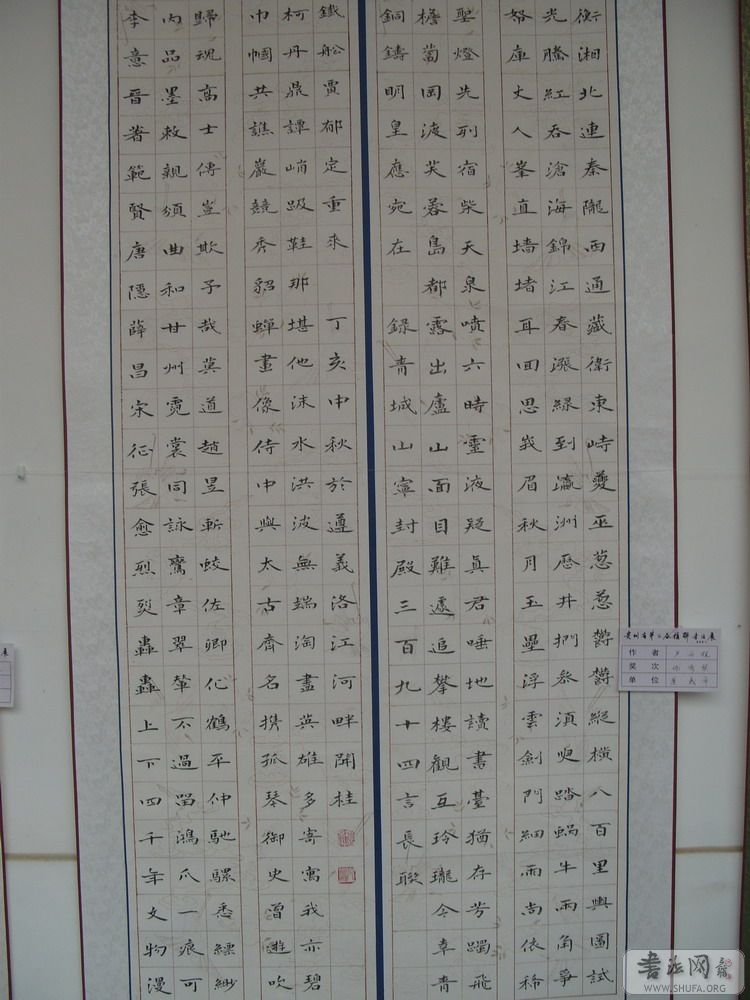 衡湘北連秦隴西通藏衛東峙夔巫葱葱鬱鬱縱橫八百里輿圖試
光騰紅吞滄海錦江春漲綠到瀛洲歷井捫參須臾踏蝸牛兩角爭
庫丈人峯直墻堵耳回思峨眉秋月玉壘浮雲劍門細雨尚依稀
聖燈先列宿柴天泉噴六時靈液疑真君唾地讀書臺猶存芳躅飛
檐蔔岡波芙蓉島都露出廬山面目難遽追攀樓觀互玲瓏今幸青
銅鑄明皇應宛在
錄青城山寧封殿三百九十四言長聯
李意晉著範賢唐隱薛昌宋征張愈烈烈轟轟上下四千年文物漫
内品墨敕親頒曲和甘州霓裳同詠鸞章翠輦不過留鴻爪一痕可
歸魂高士傳豈欺予哉莫道趙昱斬蛟佐卿化鶴平仲馳騾悉縹緲
巾幗共譙巖競秀貂蟬畫像侍中與太古齊名攜孤琴御史曾遊吹
柯丹鼎譚峭趿鞋那堪他沫水洪波無端淘盡英雄多寄寓我亦碧
鐵船賈郁定重來
丁亥中秋於遵義洛江河畔開桂
作者
奖次
单位
书法网
WWW.SHUFA.ORG